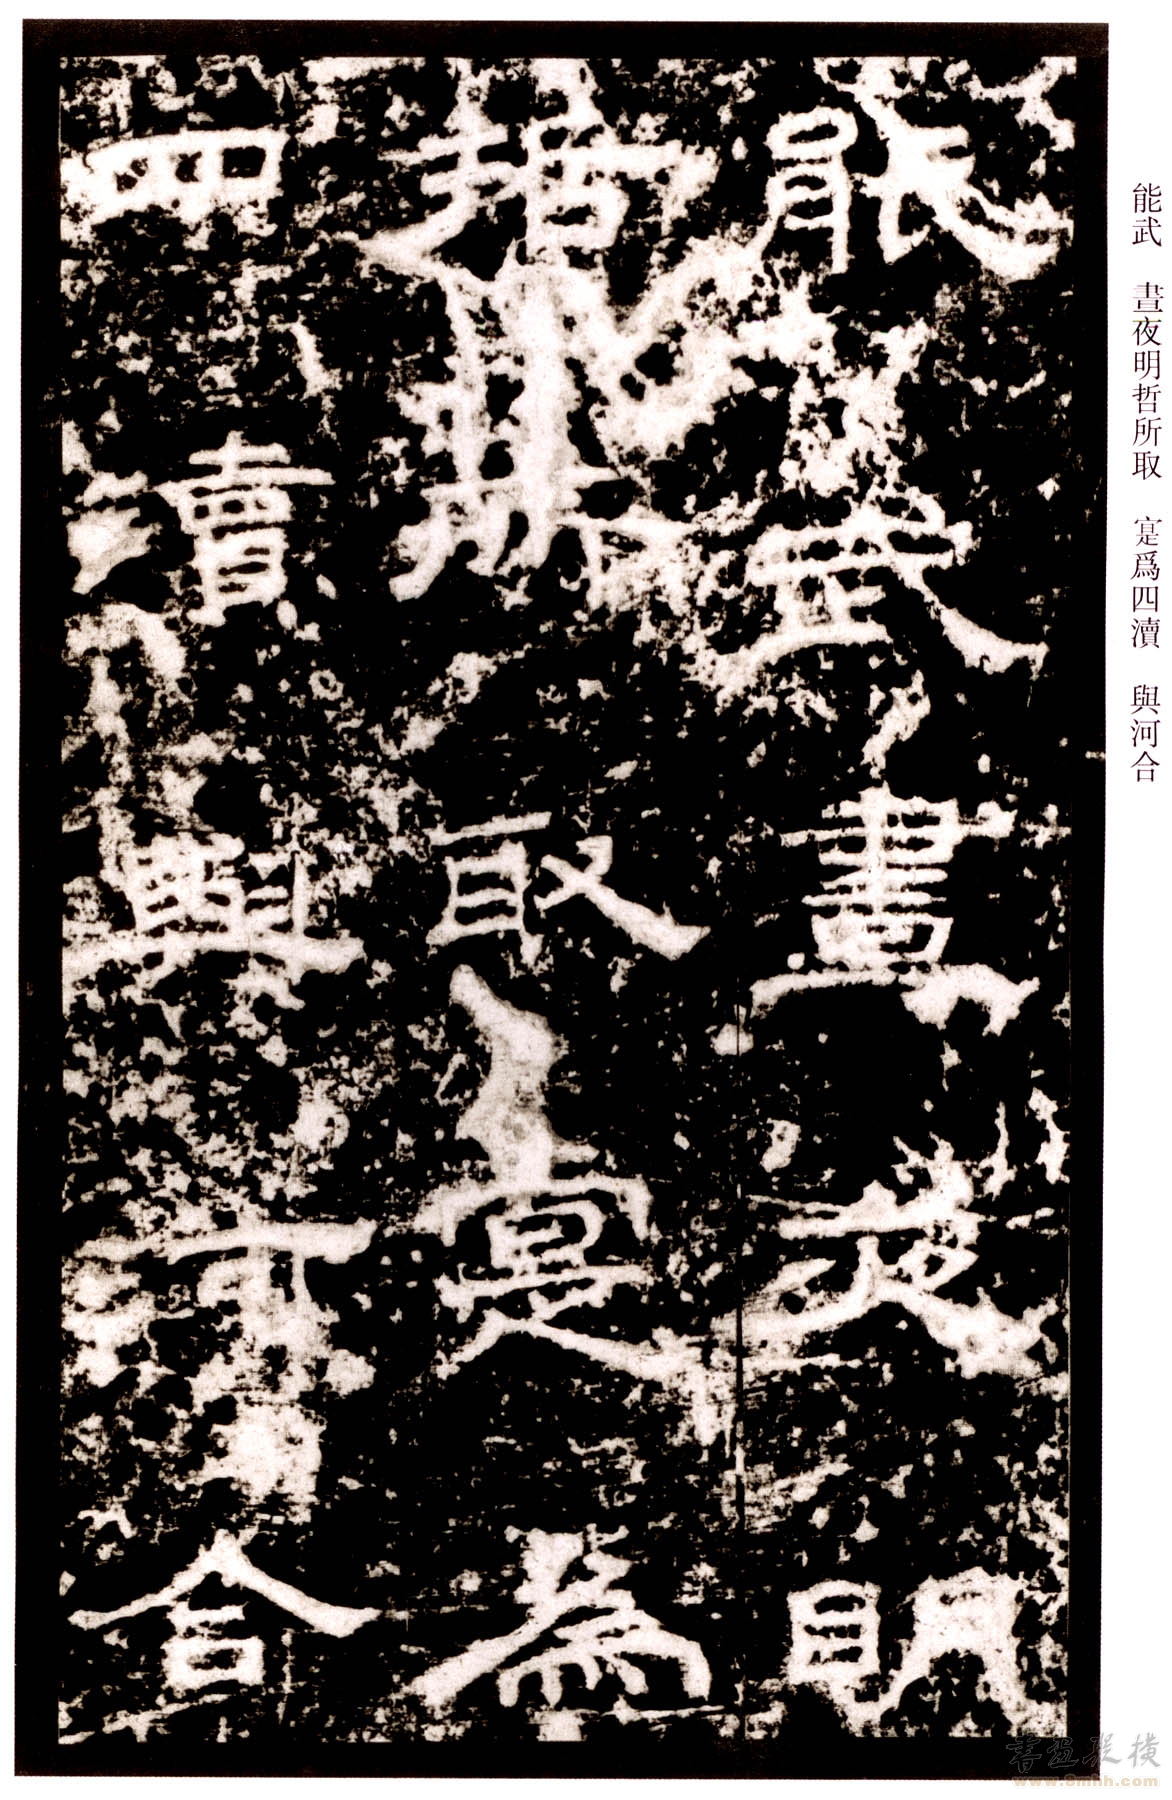 能武　晝夜明哲所取　寔爲四瀆　與河合
能武晝夜明
哲所取寔為
四瀆與河合
書畫縱橫